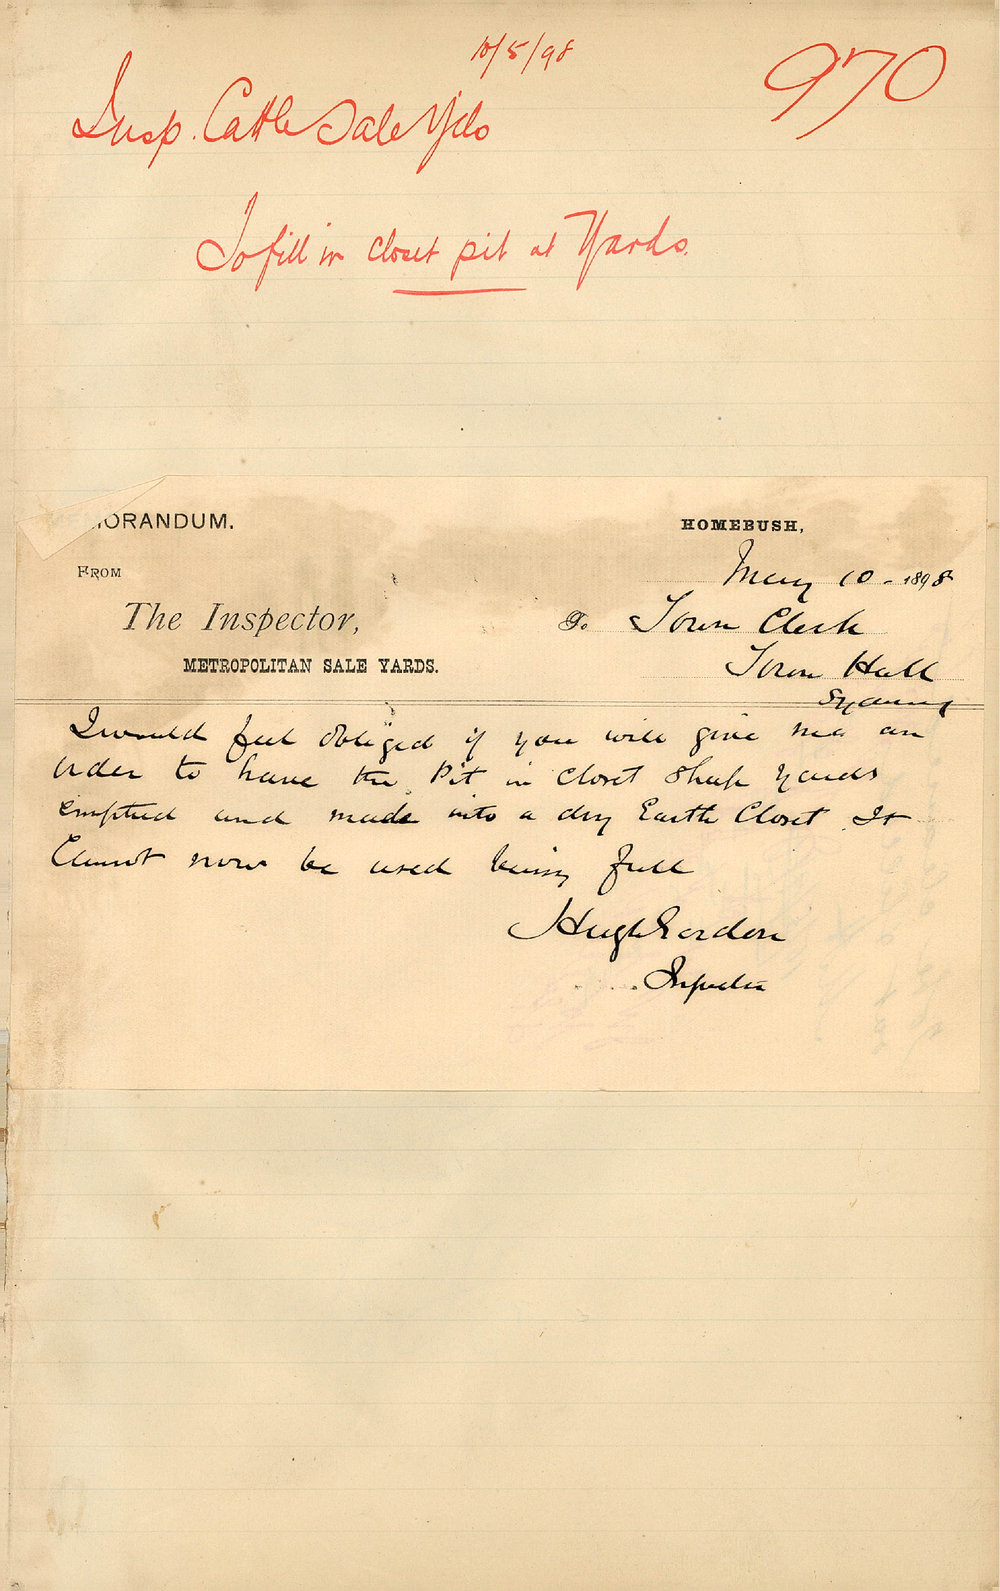 10/5/98
970
Insp. Cattle Sale Yds
To fill in closet pit at Yards.
MORANDUM.
HOMEBUSH,
FROM
May 10 - 1898
The Inspector,
To Town Clerk
METROPOLITAN SALE YARDS.
Town Hall
Sydney
I would feel obliged if you will give me an
order to have the Pit in Closet Sheep Yards
emptied and made into a dry Earth Closet It
Cannot now be used being full
Hugh Gordon
Inspector